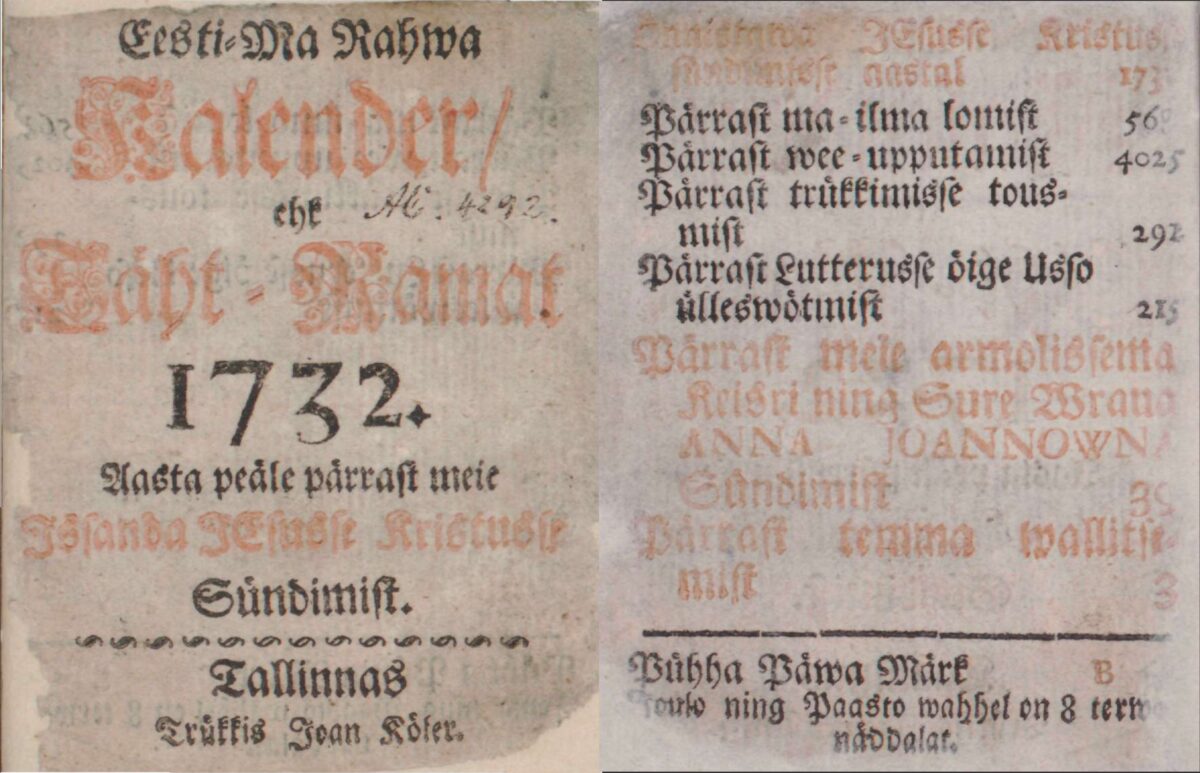 Eesti-Ma Rahwa
Kalender/
ehk
AC. 4292.
Täht-Ramat
1732.
Aasta peäle pärrast meie
Issanda JEsusse Kristusse
Sündimist.
Tallinnas
Trükkis Joan Köler.
JEsusse Kristus
sündimisse aastal 173
Pärrast ma-ilma lomist 56
Pärrast wee-upputamist 4025
Pärrast trükkimisse tous-
mist 292
Pärrast Lutterusse öige Usso
ülleswötmist 215
Pärrast meie armolissema
Keisri ning Sure Wraua
ANNA JOANNOWNA
Sündimist
Pärrast temma wallitse-
mist 3
Pühha Päwa Märk B
ning Paasto wahhel on 8 terw
näddalat.